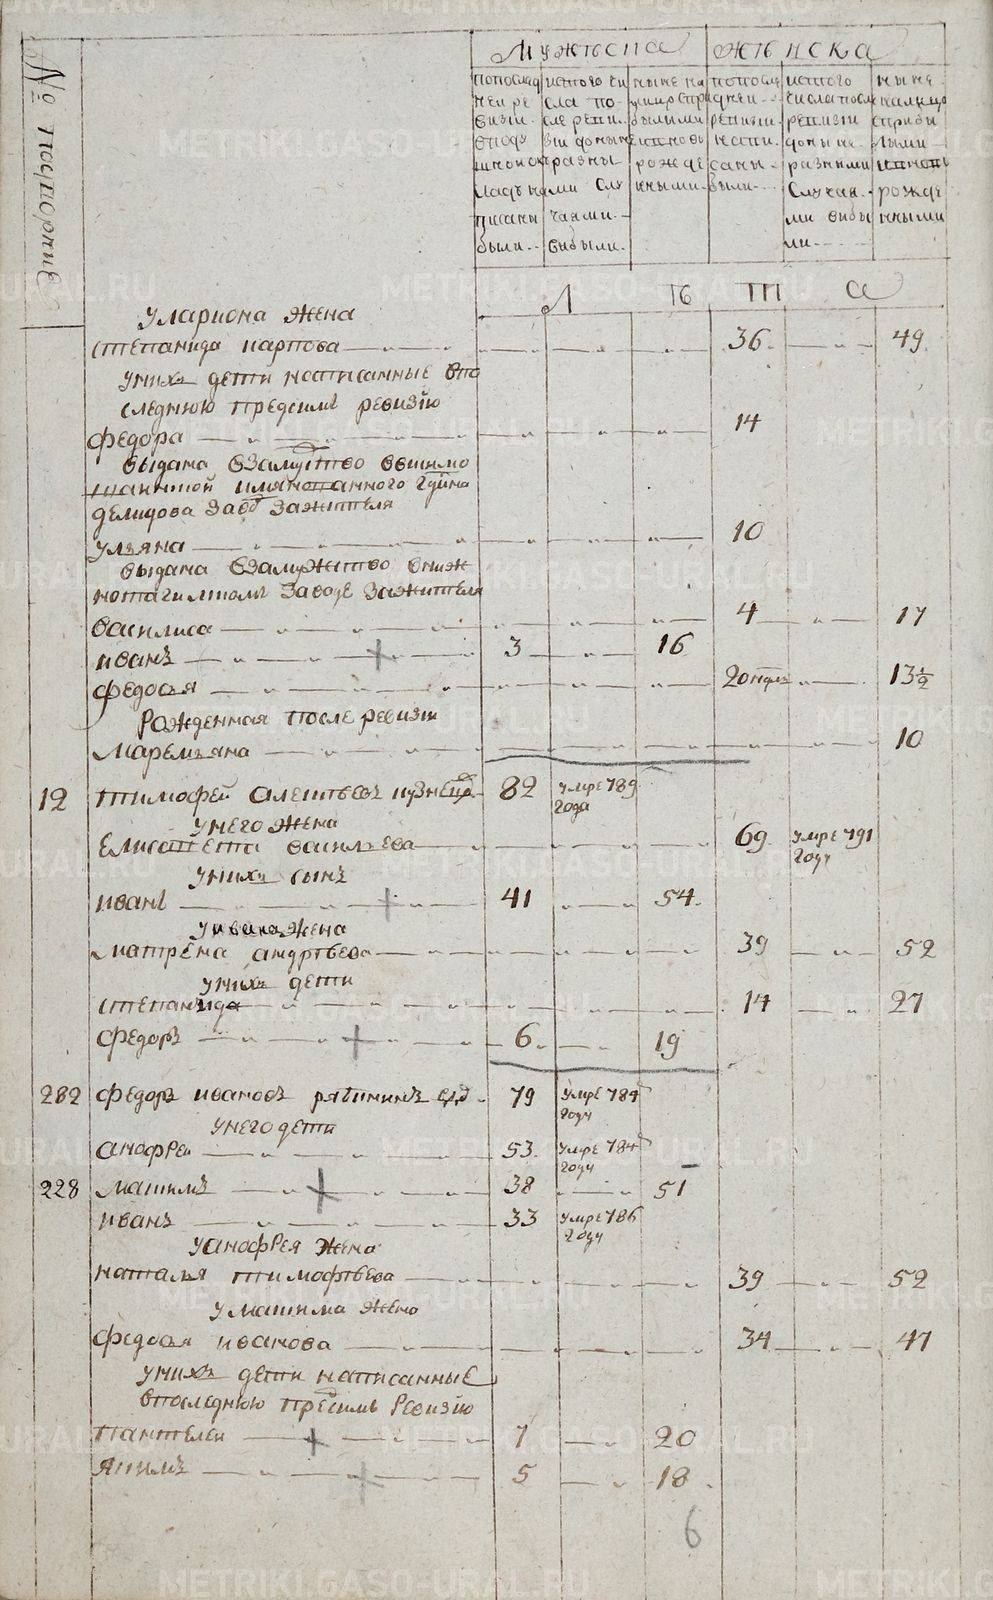 № посторние
Мужеска
Женска
по послед
ней ре
визии
в поду
шной ок
ладъ на
писаны
были
ис того чи
сла по
сле реви
зии до ныне
разны
ми слу
чаями
выбыли
ныне на
лицо с при
былыми
и вновь
рожде
нными
по после
дней
ревизии
напи
саны
были
ис того
числа посл
ревизии
до ныне
разными
случая
ми выбы
ли
ныне
налицо
с прибы
лыми
и вновь
рожде
нными
Л Ѣ Т А
У лариона жена
степанида карпова 36 49
у нихъ дети написанные впо
следнюю предсимъ ревизiю
федора 14
выдана взамужство
демидова завод зажителя
ульяна 10
выдана взамужство в ниж
нотагилском заводе зажителя
василиса 4 17
иванъ 3 16
федосья 2 13½
Рожденная после ревизiи
маремьяна 10
12 тимофей алексѣевъ кузнецов 82 умре 789
года
у него жена
Елисавета васильева 69 умре 791
году
у нихъ сынъ
иванъ 41 54
у ивана жена
матрена андреева 39 52
у нихъ дети
степанида 14 27
федоръ 6 19
282 федоръ ивановъ рябининъ 79 умре 784
году
у него дети
анофреи 53 умре 784
году
228 макимъ 38 51
иванъ 33 умре 786
году
у анофрея жена
наталья тимофѣева 39 52
у макима жена
федосья иванова 34 47
у нихъ дети написанные
в последнюю пресимъ ревизiю
пантелеи 7 20
Якимъ 5 18
6
METRIKI.GASO-URAL.RU